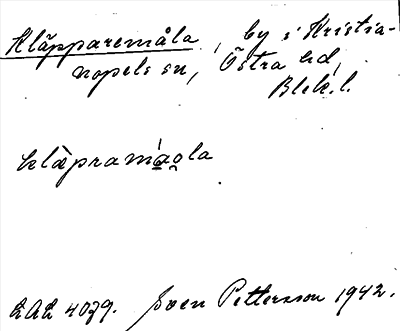 Kläpparemåla, by i Kristia-
nopels sn, Östra hd,
Blek. l.
klæ̀pramá̱o̯la
LAL 4039. Sven Pettersson 1942.